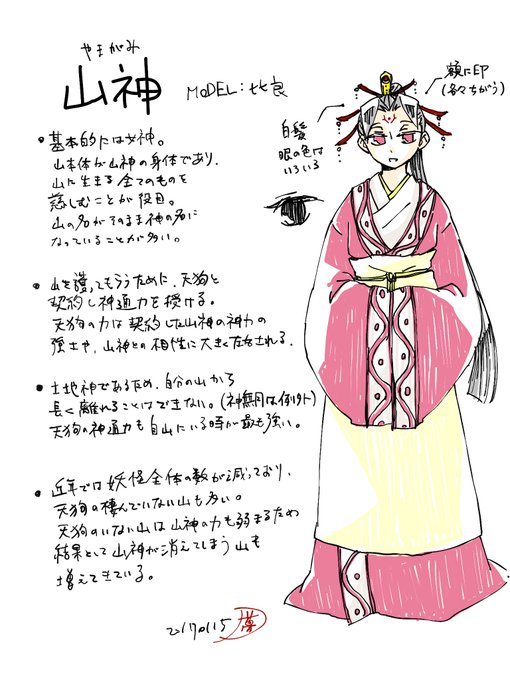 やまがみ
山神 MODEL:比良
額に印
(各々ちがう)
白髪
眼の色は
いろいろ
•基本的には女神。
山本体が山神の身体であり、
山に生きる全てのものを
慈しむことが役目。
山の名がそのまま神の名に
なっていることが多い。
•山を護ってもらうために、天狗と
契約し神通力を授ける。
天狗の力は契約した山神の神力の
強さや、山神との相性に大きく左右される。
•土地神であるため、自分の山から
長く離れることはできない。(神無月は例外)
天狗の神通力も自山にいる時が最も強い。
•近年では妖怪全体の数が減っており、
天狗の棲んでいない山も多い。
天狗のいない山は山神の力も弱まるため
結果として山神が消えてしまう山も
増えてきている。
20170115